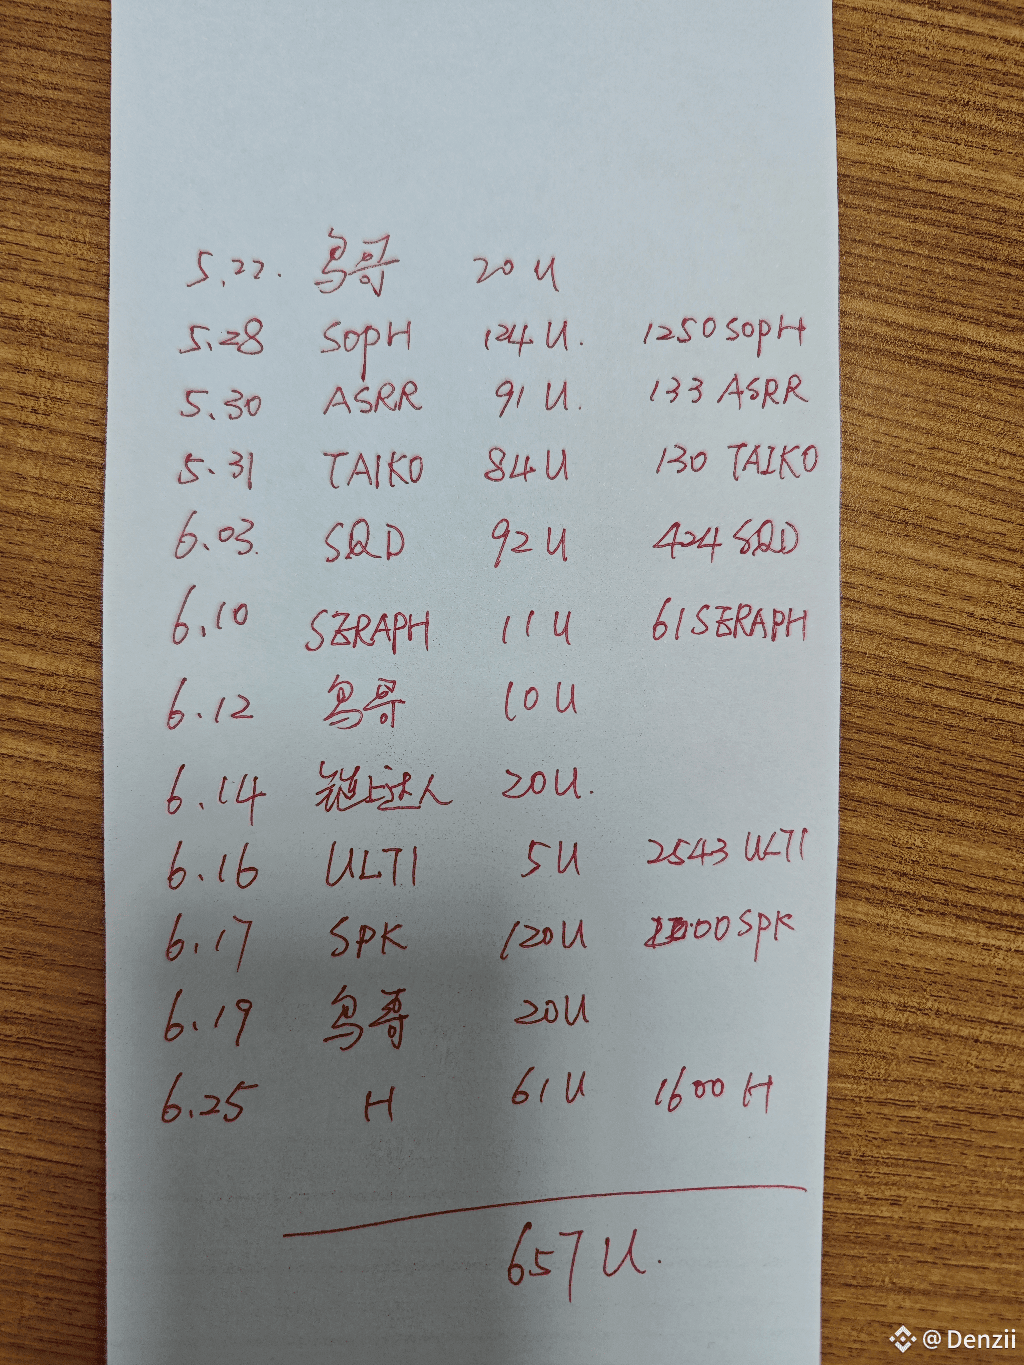 5.22. 鸟哥 20 U
5.28 SOPH 124 U. 1250 SOPH
5.30 ASRR 91 U. 133 ASRR
5.31 TAIKO 84 U 130 TAIKO
6.03. SQD 92 U 424 SQD
6.10 SERAPH 11 U 61 SERAPH
6.12 鸟哥 10 U
6.14 链上达人 20U.
6.16 ULTI 5U 2543 ULTI
6.17 SPK 120U 00 SPK
6.19 鸟哥 20U
6.25 H 61U 1600 H
657 U.
@Denzii